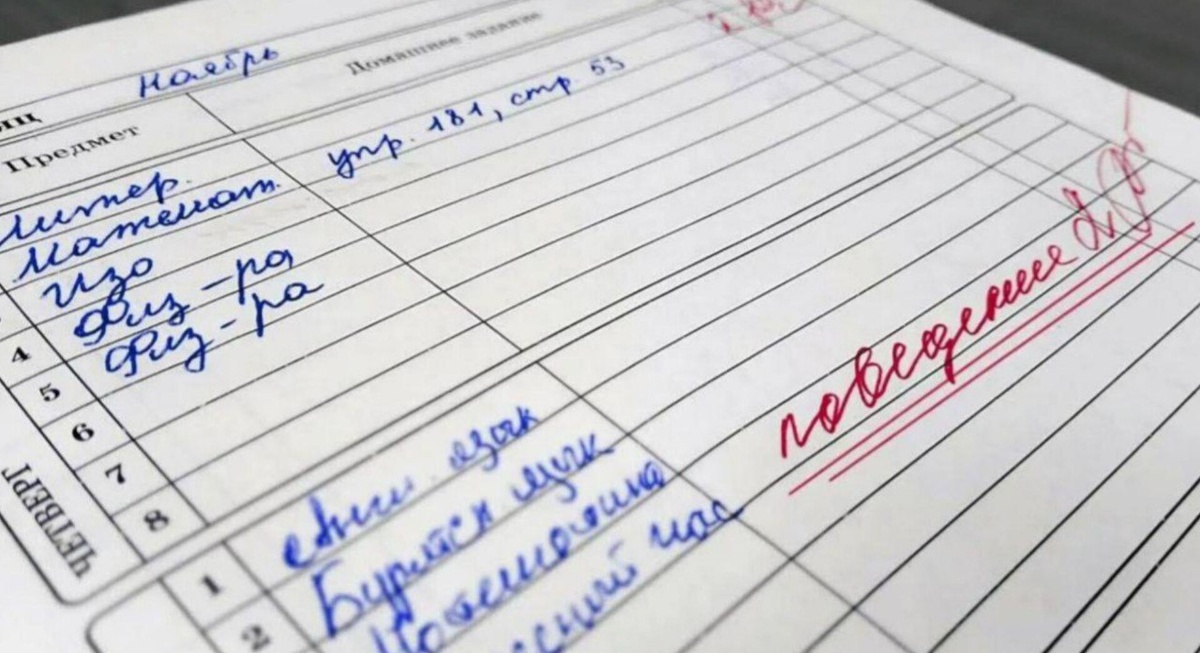 Ноябрь
Предмет Домашнее задание
Литер.
Математ. упр. 181, стр 53
Изо
4 Физ-ра
5 Физ-ра
6
7
8
ЧЕТВЕРГ
поведение 2
1 Англ. язык
2 Бурятск язык
Математика
час